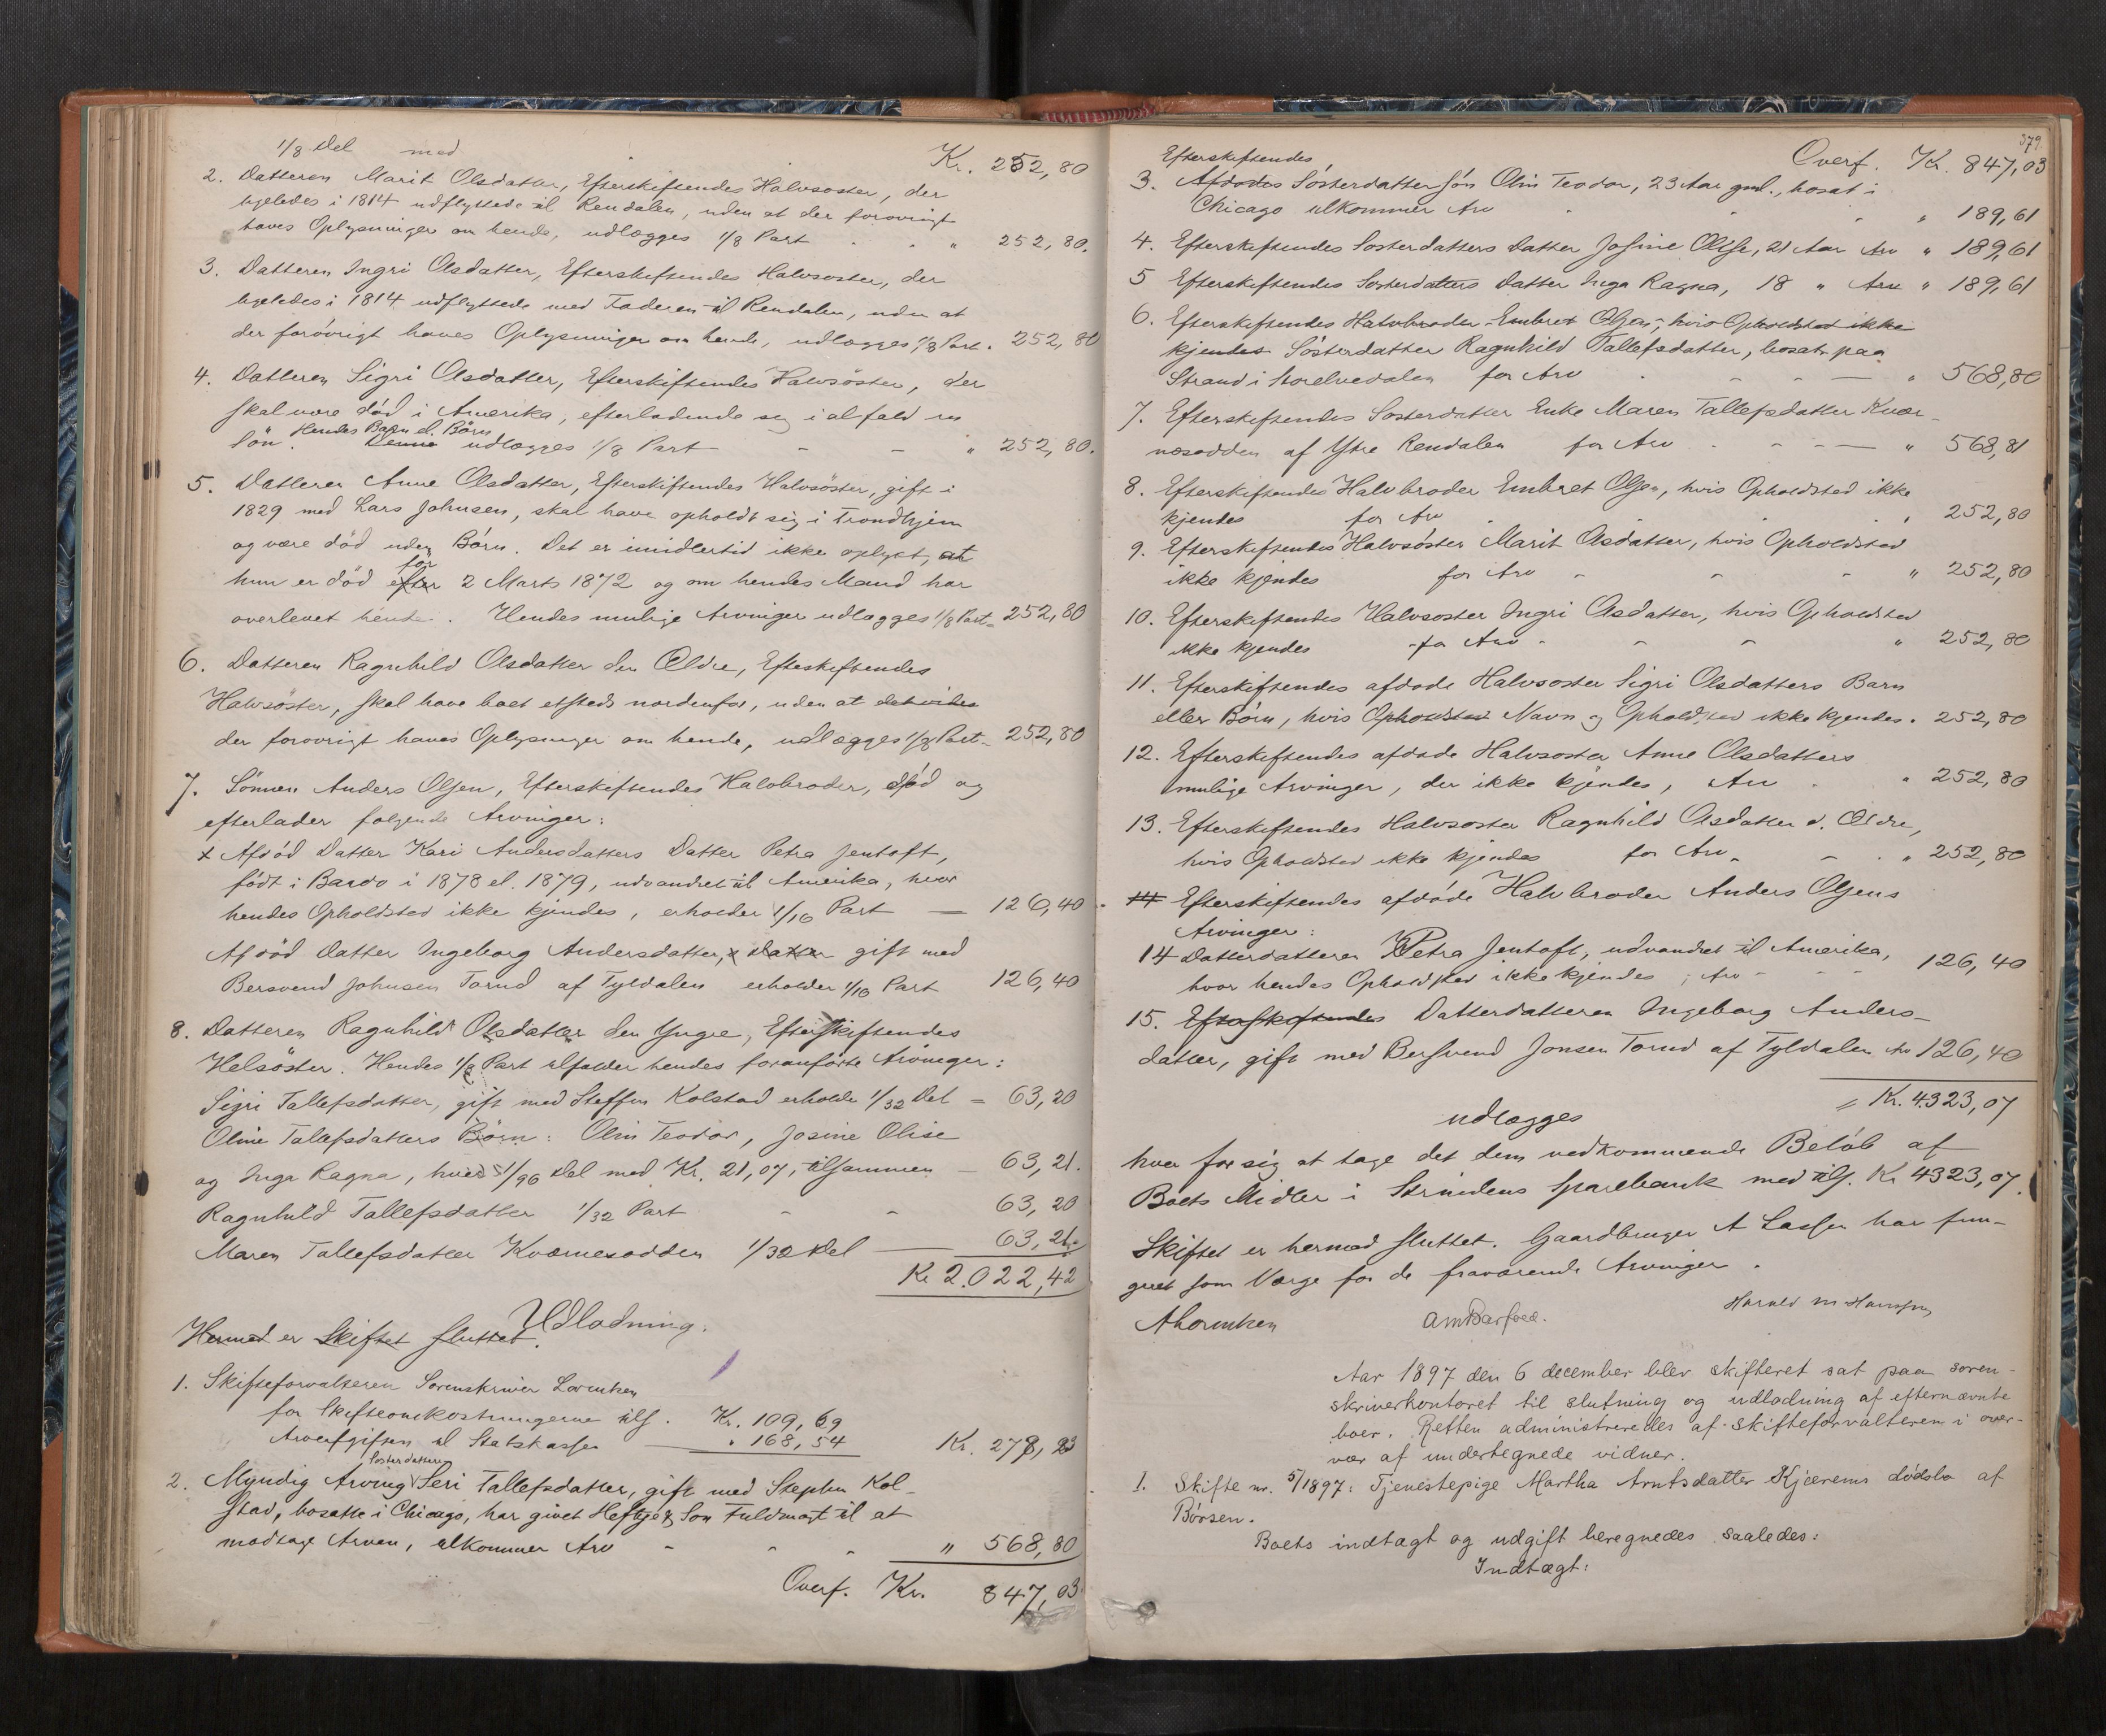 1/8 Del med Kr. 252,80
2. Datteren Marit Olsdatter, Efterskiftendes Halvsøster, der
ligeledes i 1814 udflyttede til Rendalen, uden at der forøvrigt
haves Oplysninger om hende, udlægges 1/8 Part " 252,80.
3. Datteren Ingri Olsdatter, Efterskiftendes Halvsøster, der
ligeledes i 1814 udflyttede med Faderen til Rendalen, uden at
der forøvrigt haves Oplysninger om hende, udlægges 1/8 Part. 252,80
4. Datteren Sigri Olsdatter, Efterskiftendes Halvsøster, der
skal være död i Amerika, efterladende sig i alfald en
Sön. Hendes Barn el. Börn Denne udlægges 1/8 Part " 252,80.
5. Datteren Anne Olsdatter, Efterskiftendes Halvsöster, gift i
1829 med Lars Johnsen, skal have opholdt sig i Trondhjem
og være död uden Börn. Det er imidlertid ikke oplyst, at
hun er död efter för 2 Marts 1872 og om hendes Mand har
overlevet hende. Hendes mulige Arvinger udlægges 1/8 Part 252,80
6. Datteren Ragnhild Olsdatter den Ældre, Efterskiftendes
Halvsöster, skal have boet etsteds nordenfor, uden at det vides
der forøvrigt haves Oplysninger om hende, udlægges 1/8 Part 252,80
7. Sönnen Anders Olsen, Efterskiftendes Halvbroder, död og
efterlader følgende Arvinger:
x Afdöd Datter Kari Andersdatters Datter Petra Jentoft,
født i Bardo i 1878 el. 1879, udvandret til Amerika, hvor
hendes Opholdsted ikke kjendes, erholder 1/16 Part — 126,40
Afdöd Datter Ingeborg Andersdatter, x Datter gift med
Bersvend Johnsen Torud af Tyldalen erholder 1/16 Part 126,40
8. Datteren Ragnhild Olsdatter den Yngre, Efterskiftendes
Helsöster. Hendes 1/8 Part tilfalder hendes foranførte Arvinger:
Sigri Tallefsdatter, gift med Steffen Kolstad erholder 1/32 Del = 63,20
Oline Tallefsdatters Börn: Olin Teodor, Josine Olise
og Inga Ragna, hver 1/96 Del med Kr. 21,07, tilsammen — 63,21.
Ragnhild Tallefsdatter 1/32 Part 63,20
Maren Tallefsdatter Kværnesodden 1/32 Del — 63,21.
Kr 2.022,42
Udlodning.
Hermed er Skiftet sluttet.
1. Skifteforvalteren Sorenskriver Lorentzen
for Skifteomkostningerne tils. Kr. 109,69
Arveafgiften til Statskassen " 168,54 Kr. 278,23
2. Myndig Arving Søsterdatteren Seri Tallefsdatter, gift med Stephen Kol-
stad, bosatte i Chicago, har givet Heftye & Søn Fuldmagt til at
modtage Arven, tilkommer Arv " 568,80
Overf. Kr. 847,03
379.
Overf. Kr. 847,03
Efterskiftendes
3. Afdødes Søsterdatter Sön Olin Teodor, 23 Aar gml., bosat i
Chicago tilkommer Arv " 189,61
4. Efterskiftendes Søsterdatters Datter Josine Olise, 21 Aar Arv " 189,61
5 Efterskiftendes Søsterdatters Datter Inga Ragna, 18 " Arv " 189,61
6. Efterskiftendes Halvbroder Embret Olsen, hvis Opholdsted ikke
kjendes Søsterdatter Ragnhild Tallefsdatter, bosat paa
Strand i Storelvedalen for Arv " 568,80
7. Efterskiftendes Søsterdatter Enke Maren Tallefsdatter Kvær-
nesodden af Ytre Rendalen for Arv " 568,81
8. Efterskiftendes Halvbroder Embret Olsen, hvis Opholdsted ikke
kjendes for Arv " 252,80
9. Efterskiftendes Halvsöster Marit Olsdatter, hvis Opholdsted
ikke kjendes for Arv " 252,80
10. Efterskiftendes Halvsøster Ingri Olsdatter, hvis Opholdsted
ikke kjendes for Arv " 252,80
11. Efterskiftendes afdøde Halvsøster Sigri Olsdatters Barn
eller Börn, hvis Opholdsted Navn og Opholdsted ikke kjendes. 252,80
12. Efterskiftendes afdøde Halvsøster Anne Olsdatters
mulige Arvinger, der ikke kjendes, Arv " 252,80
13. Efterskiftendes Halvsøster Ragnhild Olsdatter d. Ældre,
hvis Opholdsted ikke kjendes for Arv " 252,80
14 Efterskiftendes afdøde Halvbroder Anders Olsens
Arvinger:
14 Datterdatteren Petra Jentoft, udvandret til Amerika,
hvor hendes Opholdsted ikke kjendes, Arv 126,40
15. Efterskiftendes Datterdatteren Ingeborg Anders-
datter, gift med Bersvend Jonsen Torud af Tyldalen Arv 126,40
Kr. 4323,07
udlægges
hver for sig at tage det dem vedkommende Beløb af
Boets Midler i Strindens Sparebank med tils. Kr 4323,07.
Skiftet er hermed sluttet. Gaardbruger A Lassen har fun-
geret som Værge for de fraværende Arvinger.
ALorentzen AmBarfoed. Harald M Hansen
Aar 1897 den 6 december blev skifteret sat paa soren-
skriverkontoret til slutning og udlodning af efternævnte
boer. Retten administreredes af skifteforvalteren i over-
vær af undertegnede vidner.
1. Skifte nr. 5/1897: Tjenestepige Martha Arntsdatter Kjærems dødsbo af
Børsen.
Boets indtægt og udgift beregnedes saaledes:
Indtægt: